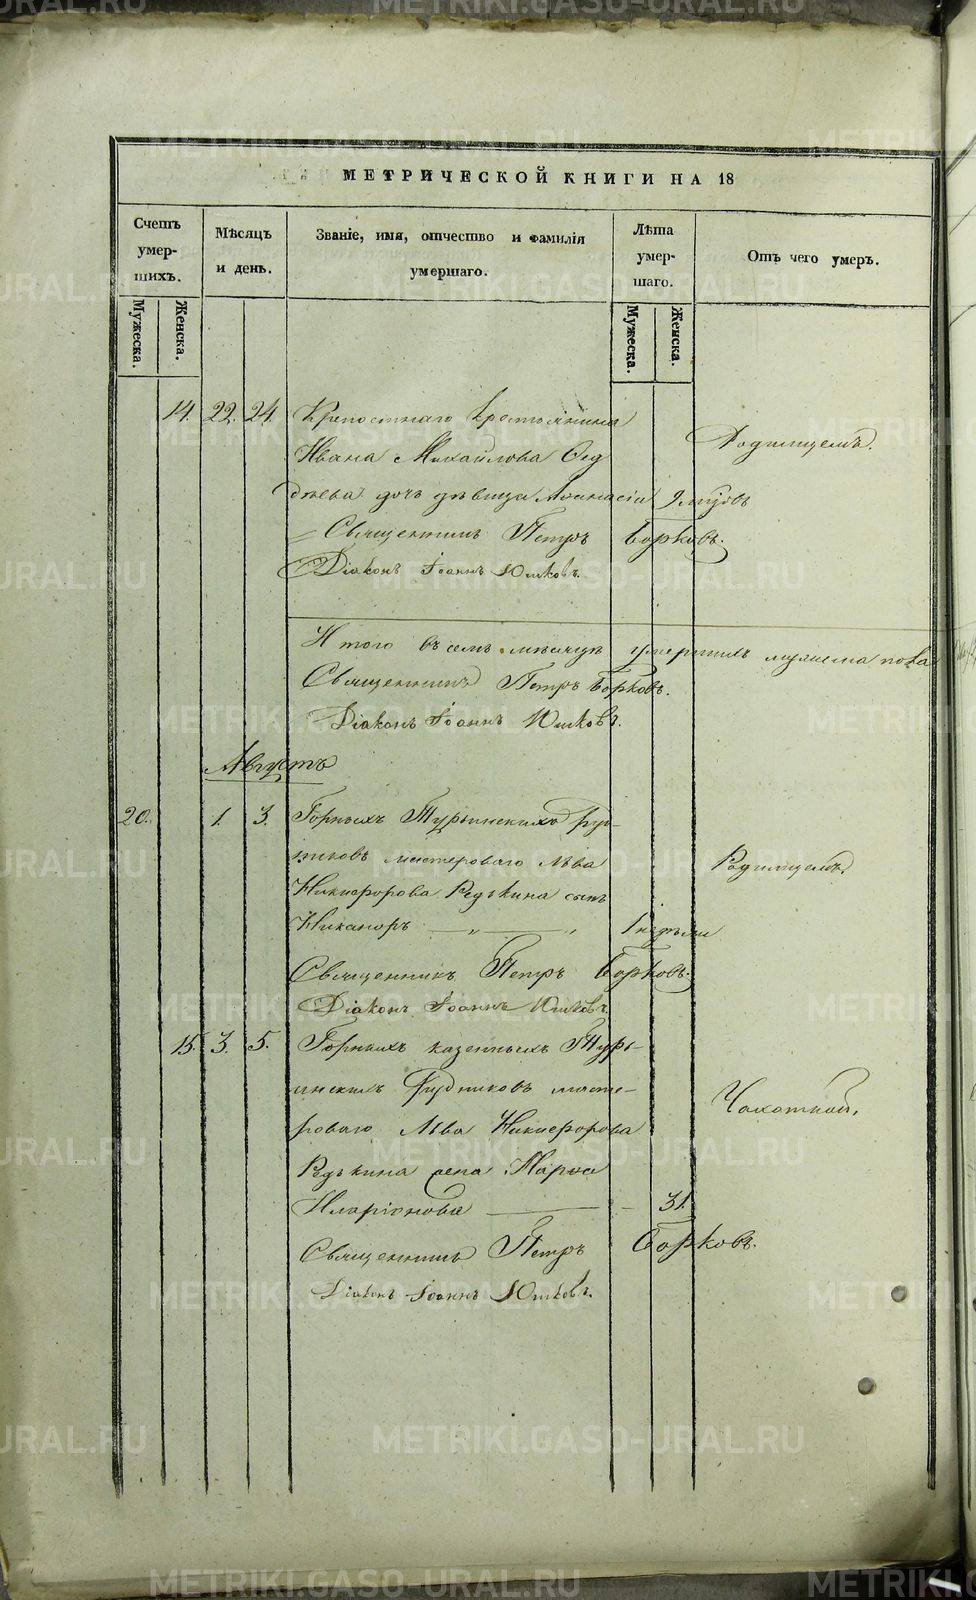 МЕТРИЧЕСКОЙ КНИГИ НА 18
Счетъ умер-шихъ.
Мужеска.
Женска.
Мѣсяцъ и день.
Званіе, имя, отчество и фамилія умершаго.
Лѣта умер-шаго.
Мужеска.
Женска.
Отъ чего умеръ.
14. 22. 24. Крепостнаго крестьянина
Ивана Михайлова
Родимцемъ.
дочь дѣвица
Священникъ Петръ Борковъ.
Діаконъ Іоаннъ Юшковъ.
Итого въ семъ мѣсяцѣ умершихъ мужеска пола
Священникъ Петръ Борковъ.
Діаконъ Іоаннъ Юшковъ.
Августъ
20. 1. 3. Горныхъ Турьинскихъ руд-
никовъ мастероваго Льва
Родимцемъ.
Никифорова Редькина сынъ
Никаноръ — „ — „ 1 недѣли
Священникъ Петръ Борковъ.
Діаконъ Іоаннъ Юшковъ.
15. 3. 5. Горныхъ казенныхъ Турь-
инскихъ Рудниковъ масте-
Чахоткой.
роваго Льва Никифорова
Рдькина жена Марѳа
Иларіонова — 31.
Священникъ Петръ Борковъ.
Діаконъ Іоаннъ Юшковъ.
METRIKI.GASO-URAL.RU